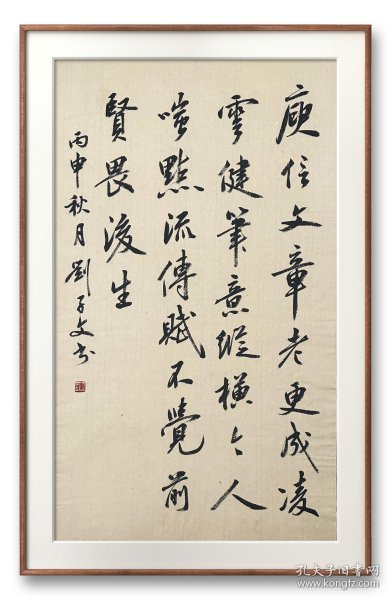 庾信文章老更成凌
雲健筆意縱橫今人
嗤點流傳賦不覺前
賢畏後生
丙申秋月劉子文書
孔夫子旧书网